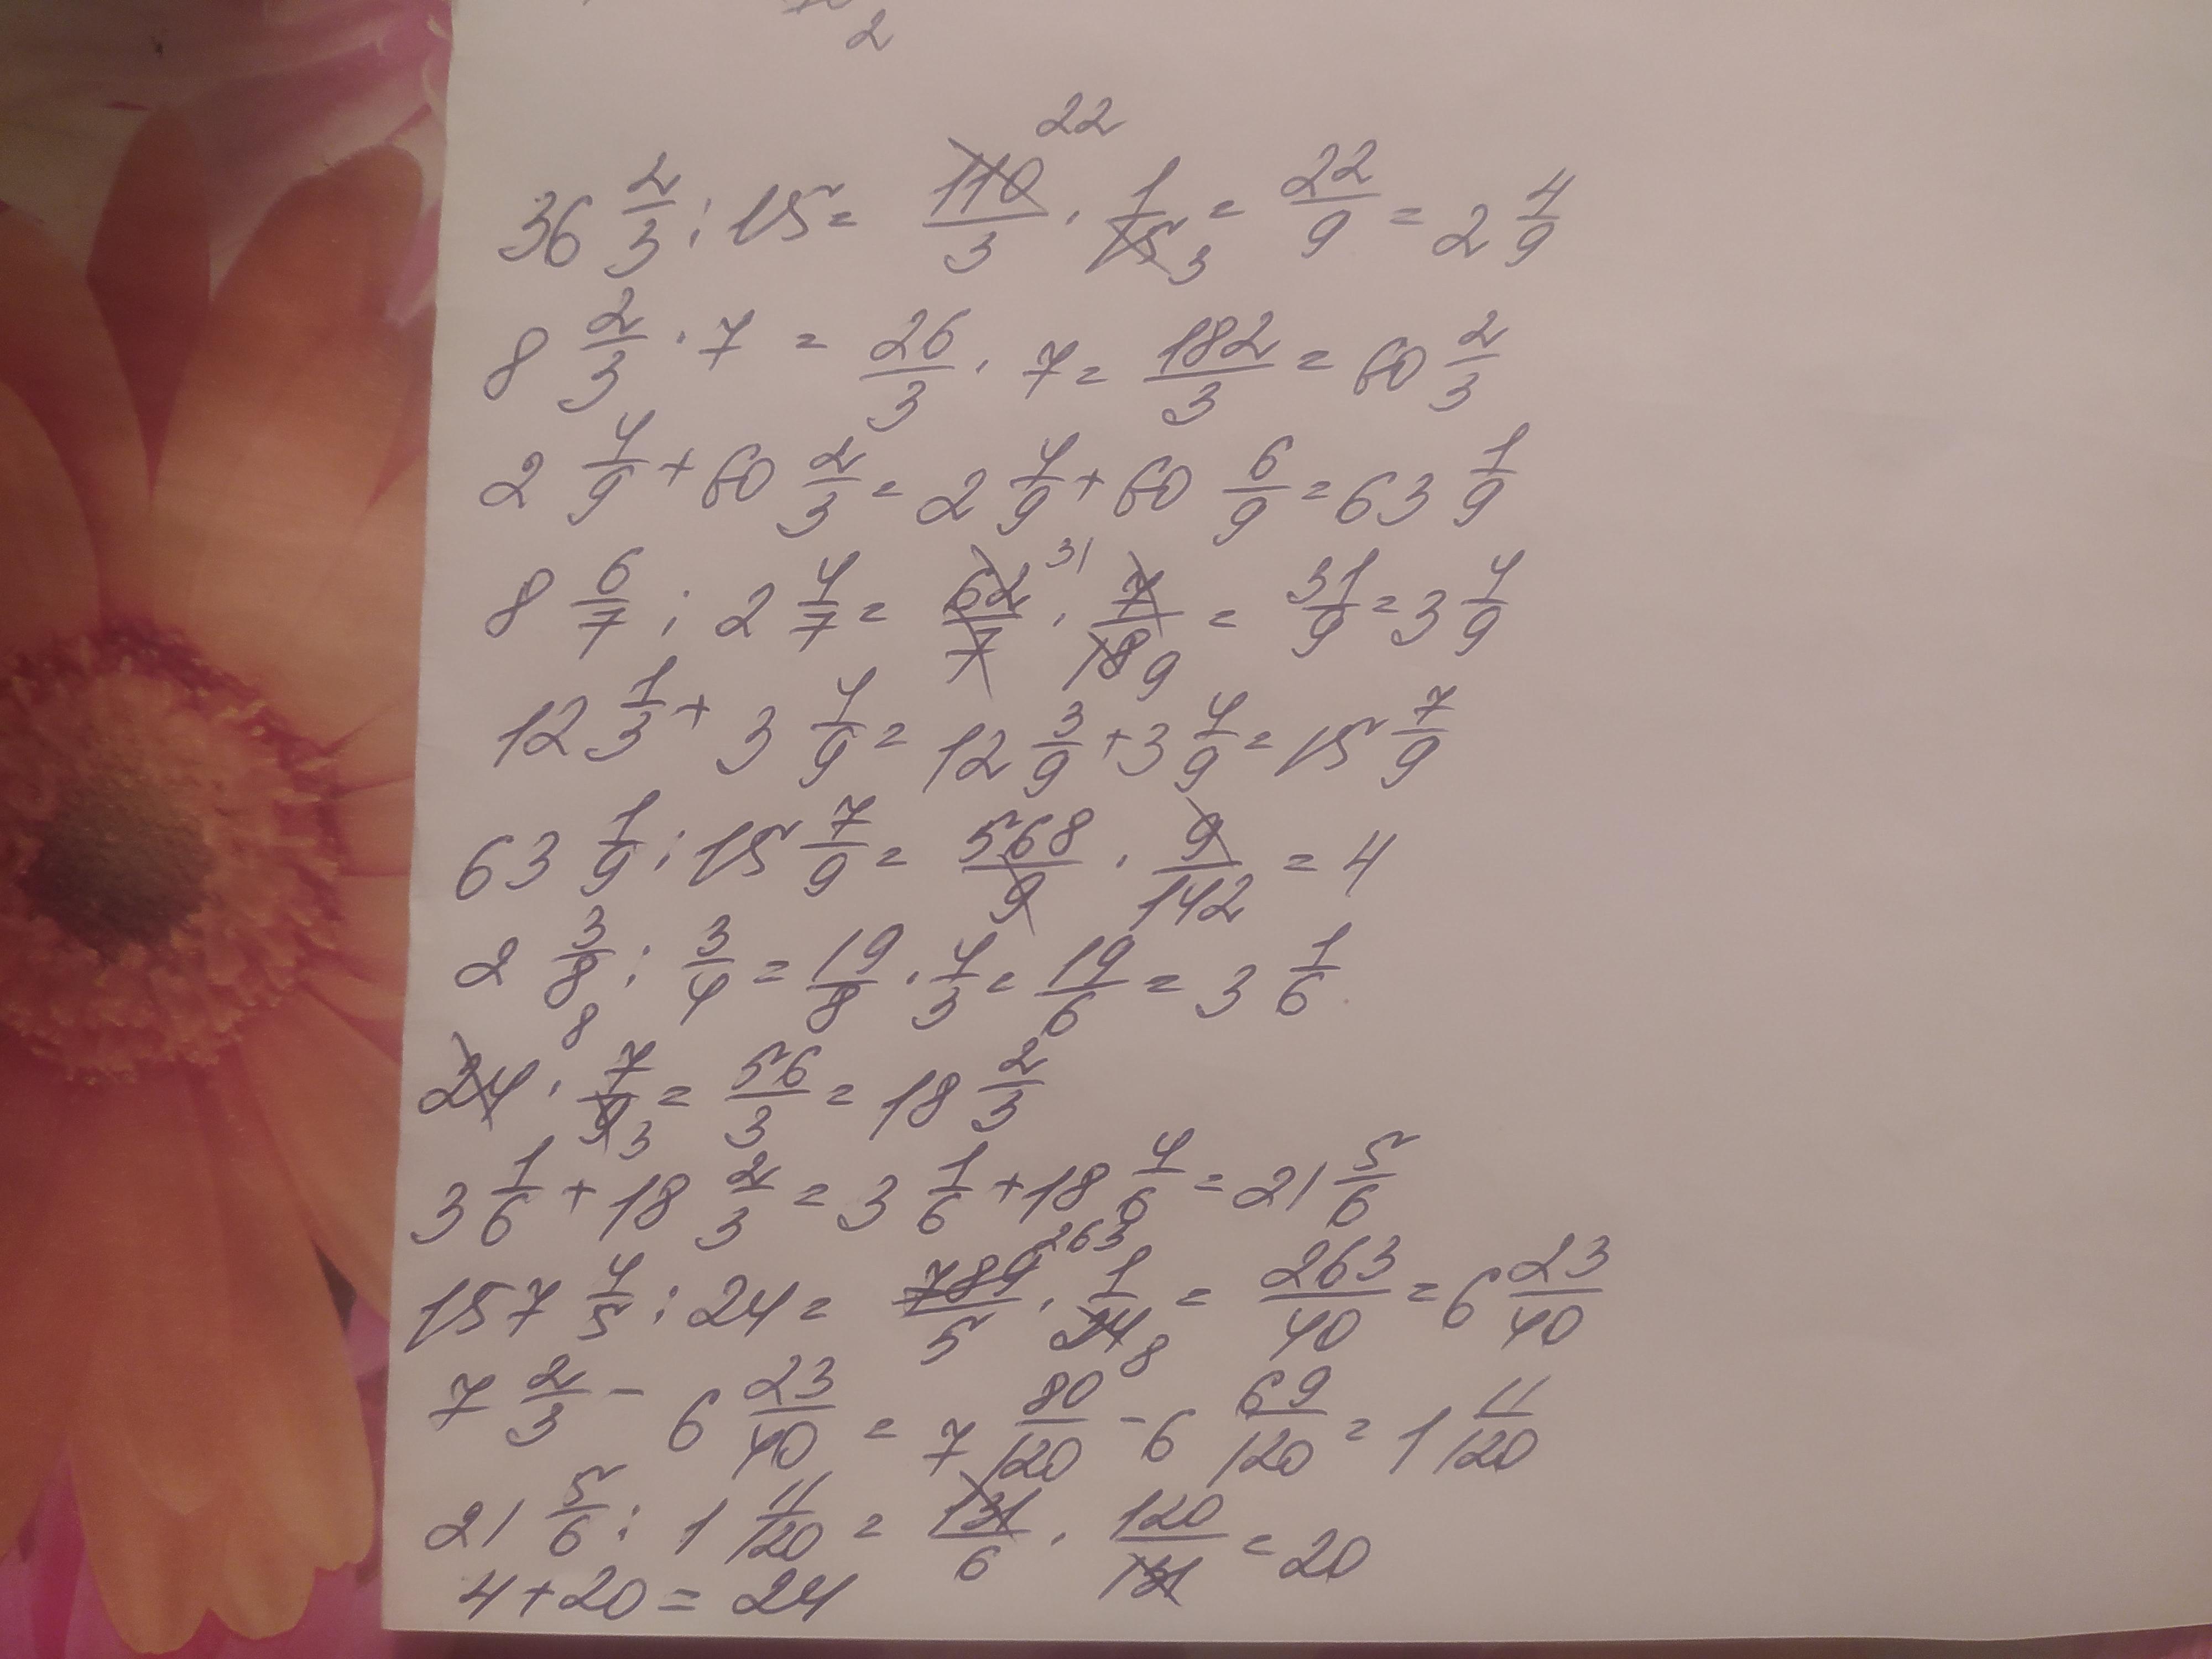 2
36 2/3 : 15 = 110/3 · 1/15 = 22/9 = 2 4/9 (22, 3)
8 2/3 · 7 = 26/3 · 7 = 182/3 = 60 2/3
2 4/9 + 60 2/3 = 2 4/9 + 60 6/9 = 63 1/9
8 6/7 : 2 4/7 = 62/7 · 7/18 = 31/9 = 3 4/9 (31, 9)
12 1/3 + 3 4/9 = 12 3/9 + 3 4/9 = 15 7/9
63 1/9 : 15 7/9 = 568/9 · 9/142 = 4
2 3/8 : 3/4 = 19/8 · 4/3 = 19/6 = 3 1/6
24 · 7/9 = 56/3 = 18 2/3 (8, 3)
3 1/6 + 18 2/3 = 3 1/6 + 18 4/6 = 21 5/6
157 4/5 : 24 = 789/5 · 1/24 = 263/40 = 6 23/40 (263, 8)
7 2/3 - 6 23/40 = 7 80/120 - 6 69/120 = 1 11/120
21 5/6 : 1 11/120 = 131/6 · 120/131 = 20
4 + 20 = 24